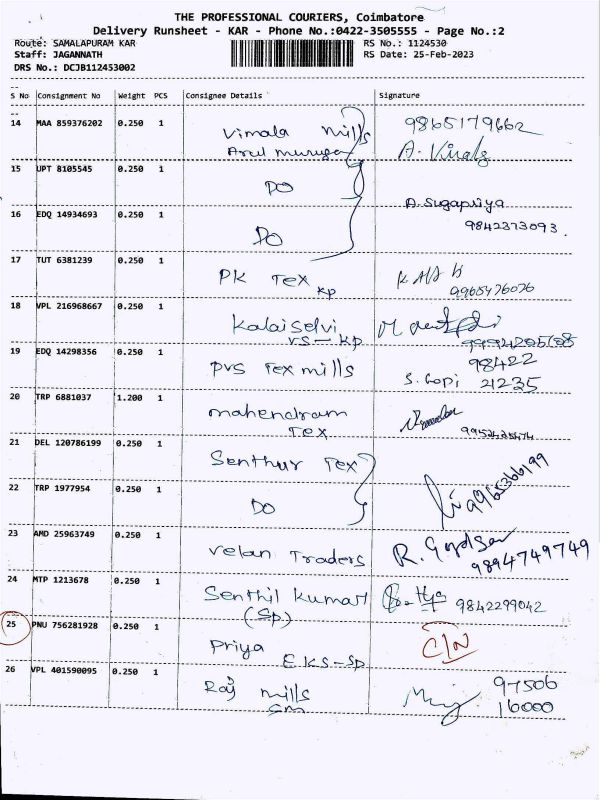 THE PROFESSIONAL COURIERS, Coimbatore
Delivery Runsheet - KAR - Phone No.:0422-3505555 - Page No.:2
Route: SAMALAPURAM KAR RS No.: 1124530
Staff: JAGANNATH RS Date: 25-Feb-2023
DRS No.: DCJB112453002
S No Consignment No Weight PCS Consignee Details Signature
14 MAA 859376202 0.250 1 Vimala mills 9865179662
Arul murugan A. Vimala
15 UPT 8105545 0.250 1 DO
16 EDQ 14934693 0.250 1 DO A. Sugapriya
9842373093.
17 TUT 6381239 0.250 1 PK Tex KP
9965476076
18 VPL 216968667 0.250 1 Kalaiselvi
VS-KP
19 EDQ 14298356 0.250 1 PVS Tex mills 98422
S. Gopi 21235
20 TRP 6881037 1.200 1 mahendram
Tex
21 DEL 120786199 0.250 1 Senthur Tex
22 TRP 1977954 0.250 1 DO 9965366199
23 AMD 25963749 0.250 1 Velan Traders R.
9894749749
24 MTP 1213678 0.250 1 Senthil Kumar 9842299042
(SP)
25 PNU 756281928 0.250 1 Priya C/N
EKS-SP
26 VPL 401590095 0.250 1 Raj mills 97506
SM 16000